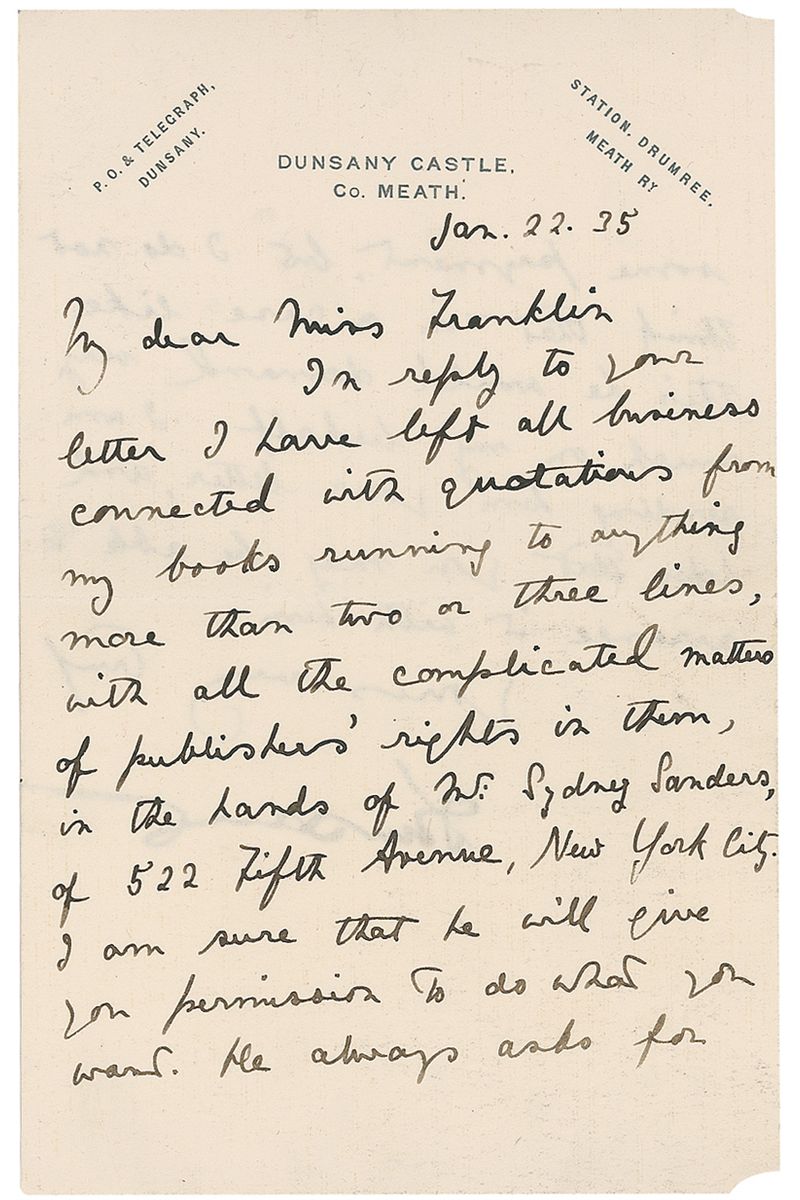 P. O. & TELEGRAPH,
DUNSANY.
STATION, DRUMREE,
MEATH RY
DUNSANY CASTLE,
Co. MEATH.
Jan. 22. 35
My dear Miss Franklin
In reply to your
letter I have left all business
connected with quotations from
my books running to anything
more than two or three lines,
with all the complicated matters
of publishers' rights in them,
in the hands of Mr. Sydney Sanders,
of 522 Fifth Avenue, New York City.
I am sure that he will give
you permission to do what you
want. He always asks for